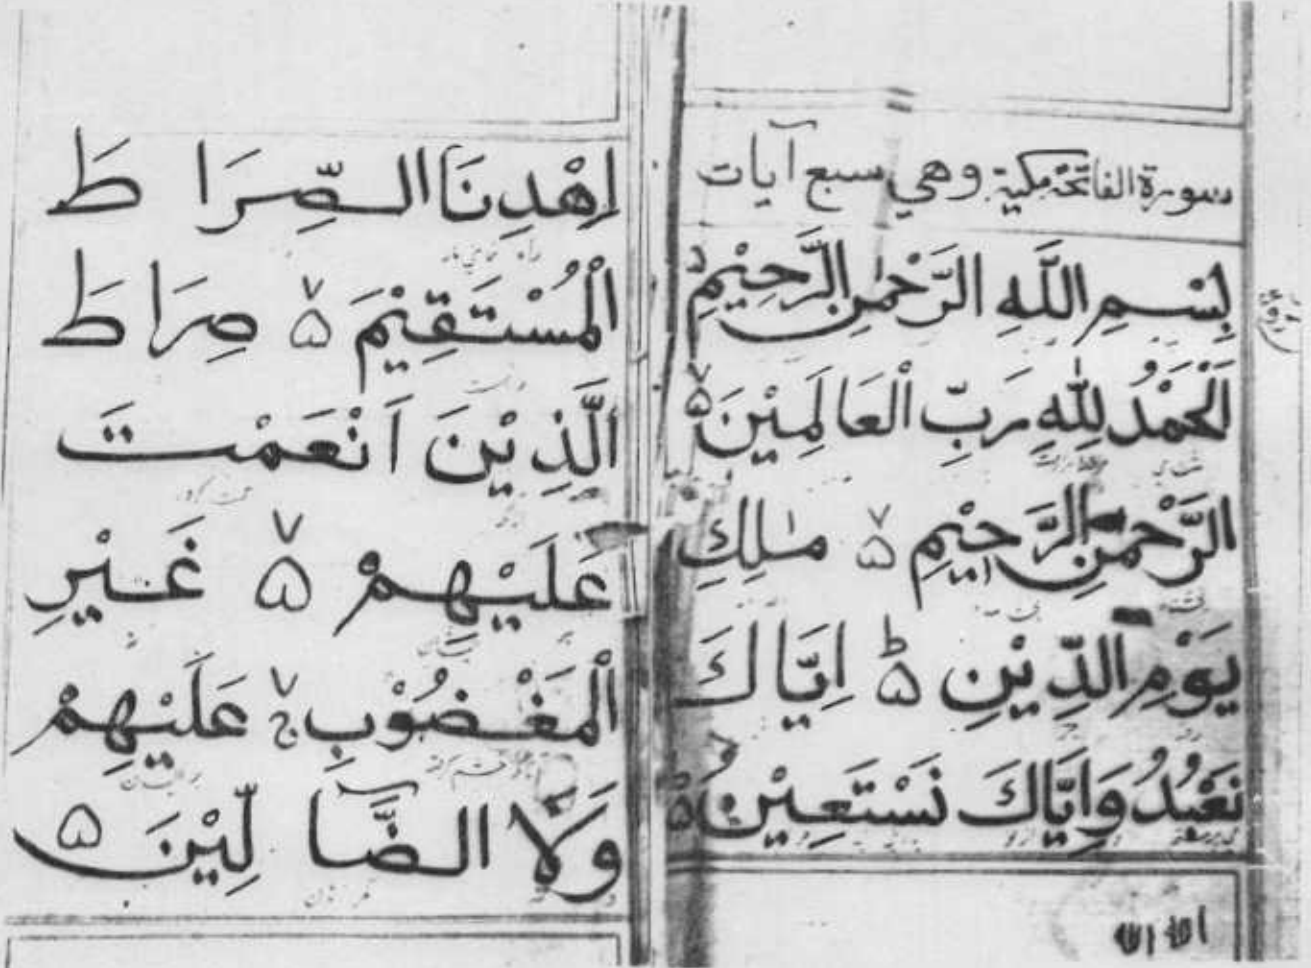 سورة الفاتحة مكية وهي سبع آيات
بِسْمِ اللَّهِ الرَّحْمٰنِ الرَّحِيْمِ
اَلْحَمْدُ لِلّٰهِ رَبِّ الْعَالَمِيْنَ ۵
الرَّحْمٰنِ الرَّحِيْمِ ۵ مٰلِكِ
يَوْمِ الدِّيْنِ ۵ اِيَّاكَ
نَعْبُدُ وَاِيَّاكَ نَسْتَعِيْنُ ۵
اِهْدِنَا الصِّرَاطَ
الْمُسْتَقِيْمَ ۵ صِرَاطَ
الَّذِيْنَ اَنْعَمْتَ
عَلَيْهِمْ ۵ غَيْرِ
الْمَغْضُوْبِ عَلَيْهِمْ
وَلَا الضَّآلِّيْنَ ۵